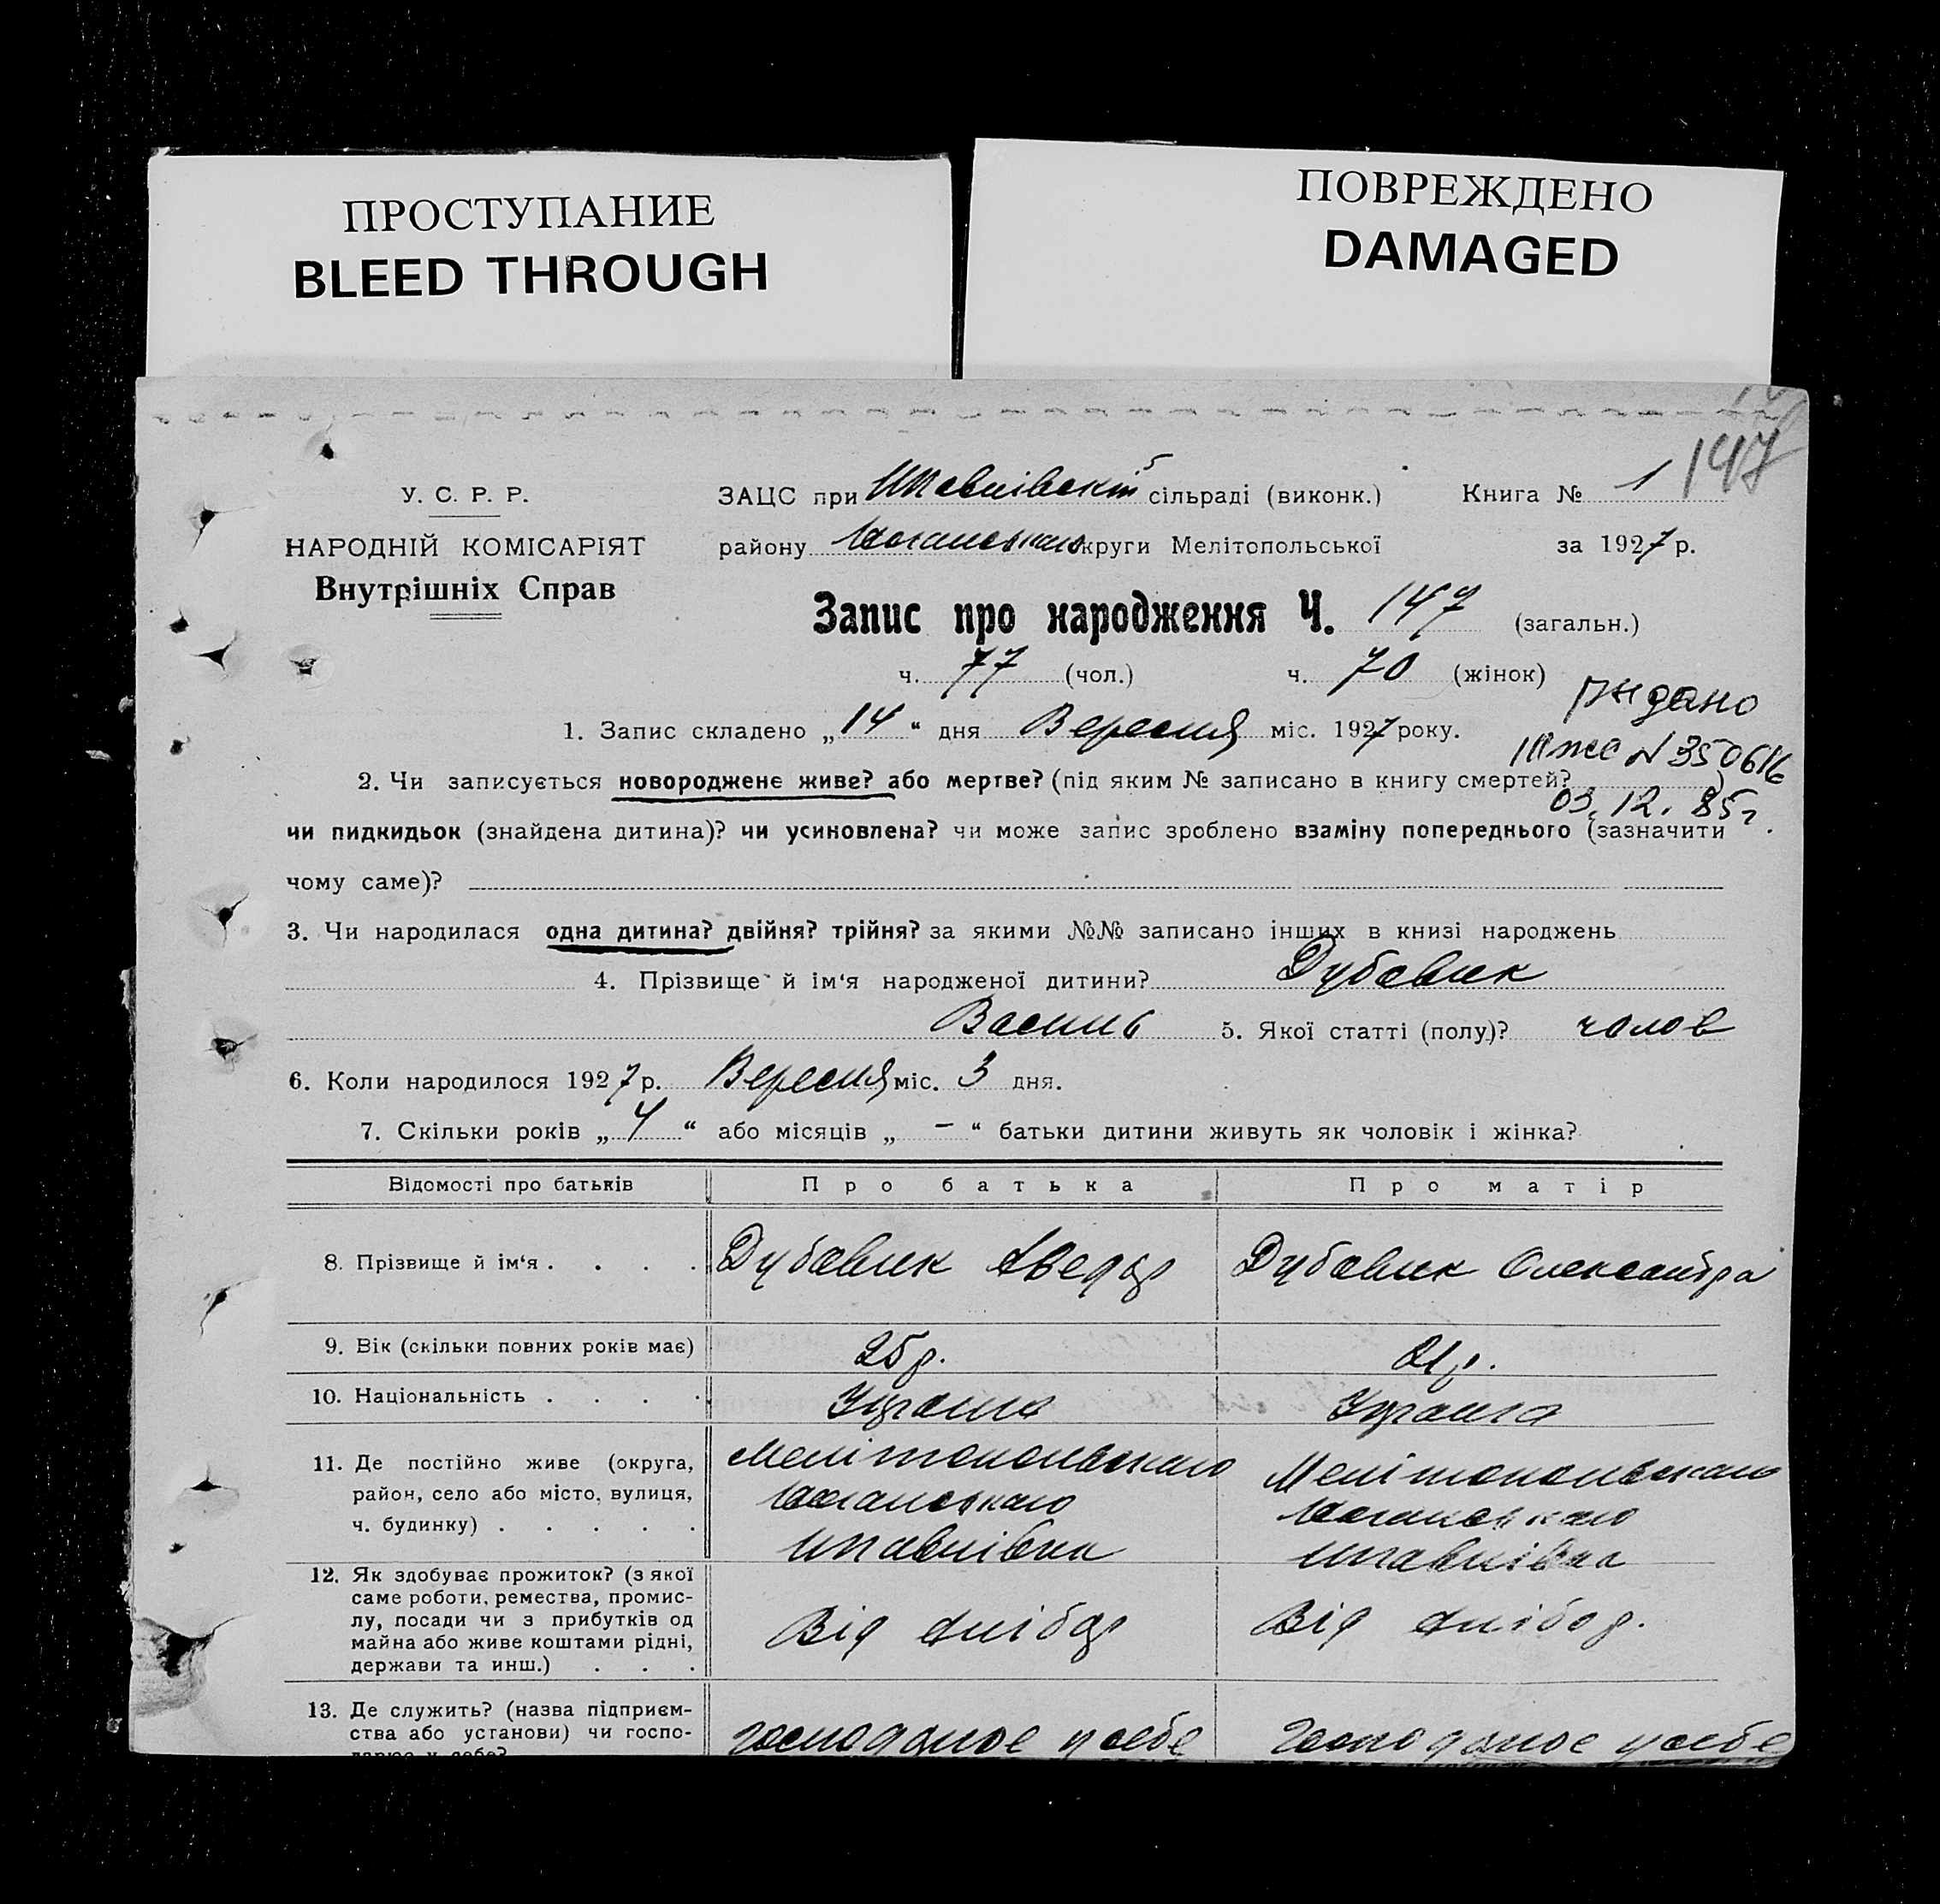 ПРОСТУПАНИЕ
BLEED THROUGH
ПОВРЕЖДЕНО
DAMAGED
147
У. С. Р. Р.
НАРОДНІЙ КОМІСАРІЯТ
Внутрішніх Справ
ЗАЦС при сільраді (виконк.) Книга № 1
району округи Мелітопольської за 1927 р.
Запис про народження Ч. 147 (загальн.)
ч. 77 (чол.) ч. 70 (жінок)
1. Запис складено „14“ дня Вересня міс. 1927 року.
видано
N 350616
03.12.85г.
2. Чи записується новороджене живе? або мертве? (під яким № записано в книгу смертей? )
чи пидкидьок (знайдена дитина)? чи усиновлена? чи може запис зроблено взаміну попереднього (зазначити
чому саме)?
3. Чи народилася одна дитина? двійня? трійня? за якими №№ записано інших в книзі народжень
4. Прізвище й ім‘я народженої дитини? Дубовик
Василь 5. Якої статті (полу)? чолов
6. Коли народилося 1927 р. Вересня міс. 3 дня.
7. Скільки років „4“ або місяців „-“ батьки дитини живуть як чоловік і жінка?
Відомості про батьків Про батька Про матір
8. Прізвище й ім‘я . . . . Дубовик Дубовик Олександра
9. Вік (скільки повних років має) 25 р. 21 р.
10. Національність . . . .
11. Де постійно живе (округа,
район, село або місто, вулиця,
ч. будинку) . . . . .
Мелітопольського Мелітопольського
12. Як здобуває прожиток? (з якої
саме роботи, ремества, промис-
лу, посади чи з прибутків од
майна або живе коштами рідні,
держави та инш.) . . .
Від хлібор Від хлібор.
13. Де служить? (назва підприєм-
ства або установи) чи госпо-
дарює у себе?
господарює у себе господарює у себе